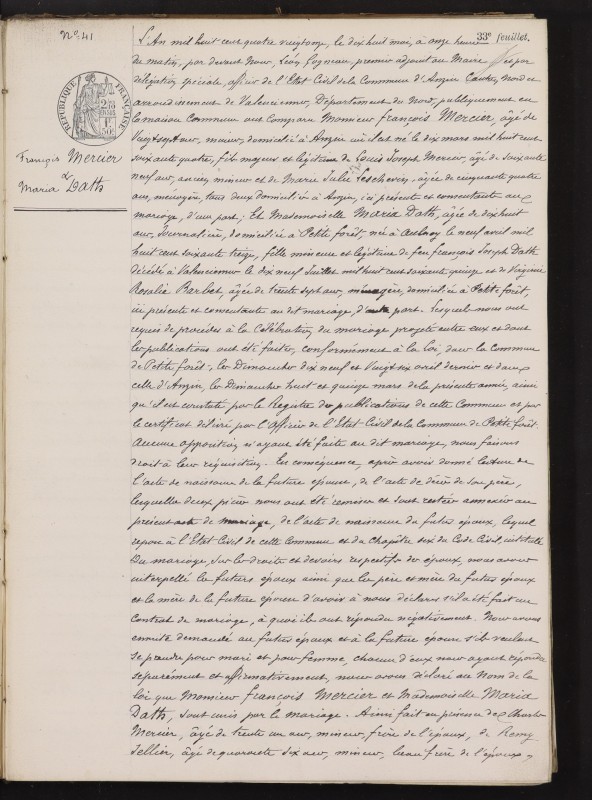 33e feuillet.
N° 41
RÉPUBLIQUE FRANÇAISE
François Mercier
&
Maria Dath
L'An mil huit cent quatre vingt onze, le dix huit mai, à onze heures
du matin, par devant Nous, Léon Cogneau, premier adjoint au Maire et par
délégation spéciale, officier de l'Etat Civil de la Commune d'Anzin Canton Nord et
arrondissement de Valenciennes, Département du Nord, publiquement en
la maison Commune ont comparu Monsieur François Mercier, âgé de
Vingt sept ans, mineur, domicilié à Anzin où il est né le dix mars mil huit cent
soixante quatre, fils majeur et légitime de Louis Joseph Mercier, âgé de soixante
neuf ans, ancien mineur et de Marie Julie Lescherez, âgée de cinquante quatre
ans, ménagère, tous deux domiciliés à Anzin, ici présents et consentants au
mariage, d'une part; Et Mademoiselle Maria Dath, âgée de dix huit
ans, Journalière, domiciliée à Petite forêt, née à Aulnoy le neuf avril mil
huit cent soixante treize, fille mineure et légitime de feu François Joseph Dath
décédé à Valenciennes le dix neuf Juillet mil huit cent soixante quinze et de Virginie
Rosalie Barbet, âgée de trente sept ans, ménagère, domiciliée à Petite forêt,
ici présente et consentante au dit mariage, d'autre part. Lesquels nous ont
requis de procéder à la Célébration du mariage projeté entre eux et dont
les publications ont été faites, conformément à la loi, dans la Commune
de Petite forêt, les Dimanches dix neuf et Vingt six avril dernier et dans
celle d'Anzin, les Dimanches huit et quinze mars de la présente année, ainsi
qu'il est constaté par le Registre des publications de cette Commune et par
le certificat délivré par l'Officier de l'Etat Civil de la Commune de Petite forêt.
Aucune opposition n'ayant été faite au dit mariage, nous faisons
droit à leur réquisition. En conséquence, après avoir donné lecture de
l'acte de naissance de la future épouse, de l'acte de décès de son père,
lesquelles deux pièces nous ont été remises et sont restées annexées au
présent acte de mariage, de l'acte de naissance du futur époux, lequel
repose à l'Etat Civil de cette Commune et du Chapitre six du Code Civil, intitulé
Du mariage, sur les droits et devoirs respectifs des époux, nous avons
interpellé les futurs époux ainsi que les père et mère du futur époux
et la mère de la future épouse d'avoir à nous déclarer s'il a été fait un
Contrat de mariage, à quoi ils ont répondu négativement. Nous avons
ensuite demandé au futur époux et à la future épouse s'ils veulent
se prendre pour mari et pour femme, chacun d'eux nous ayant répondu
séparément et affirmativement, nous avons déclaré au Nom de la
loi que Monsieur François Mercier et Mademoiselle Maria
Dath, sont unis par le mariage. Ainsi fait en présence de Charles
Mercier, âgé de trente un ans, mineur, frère de l'époux, de Remy
Tellier, âgé de quarante six ans, mineur, beau frère de l'époux,